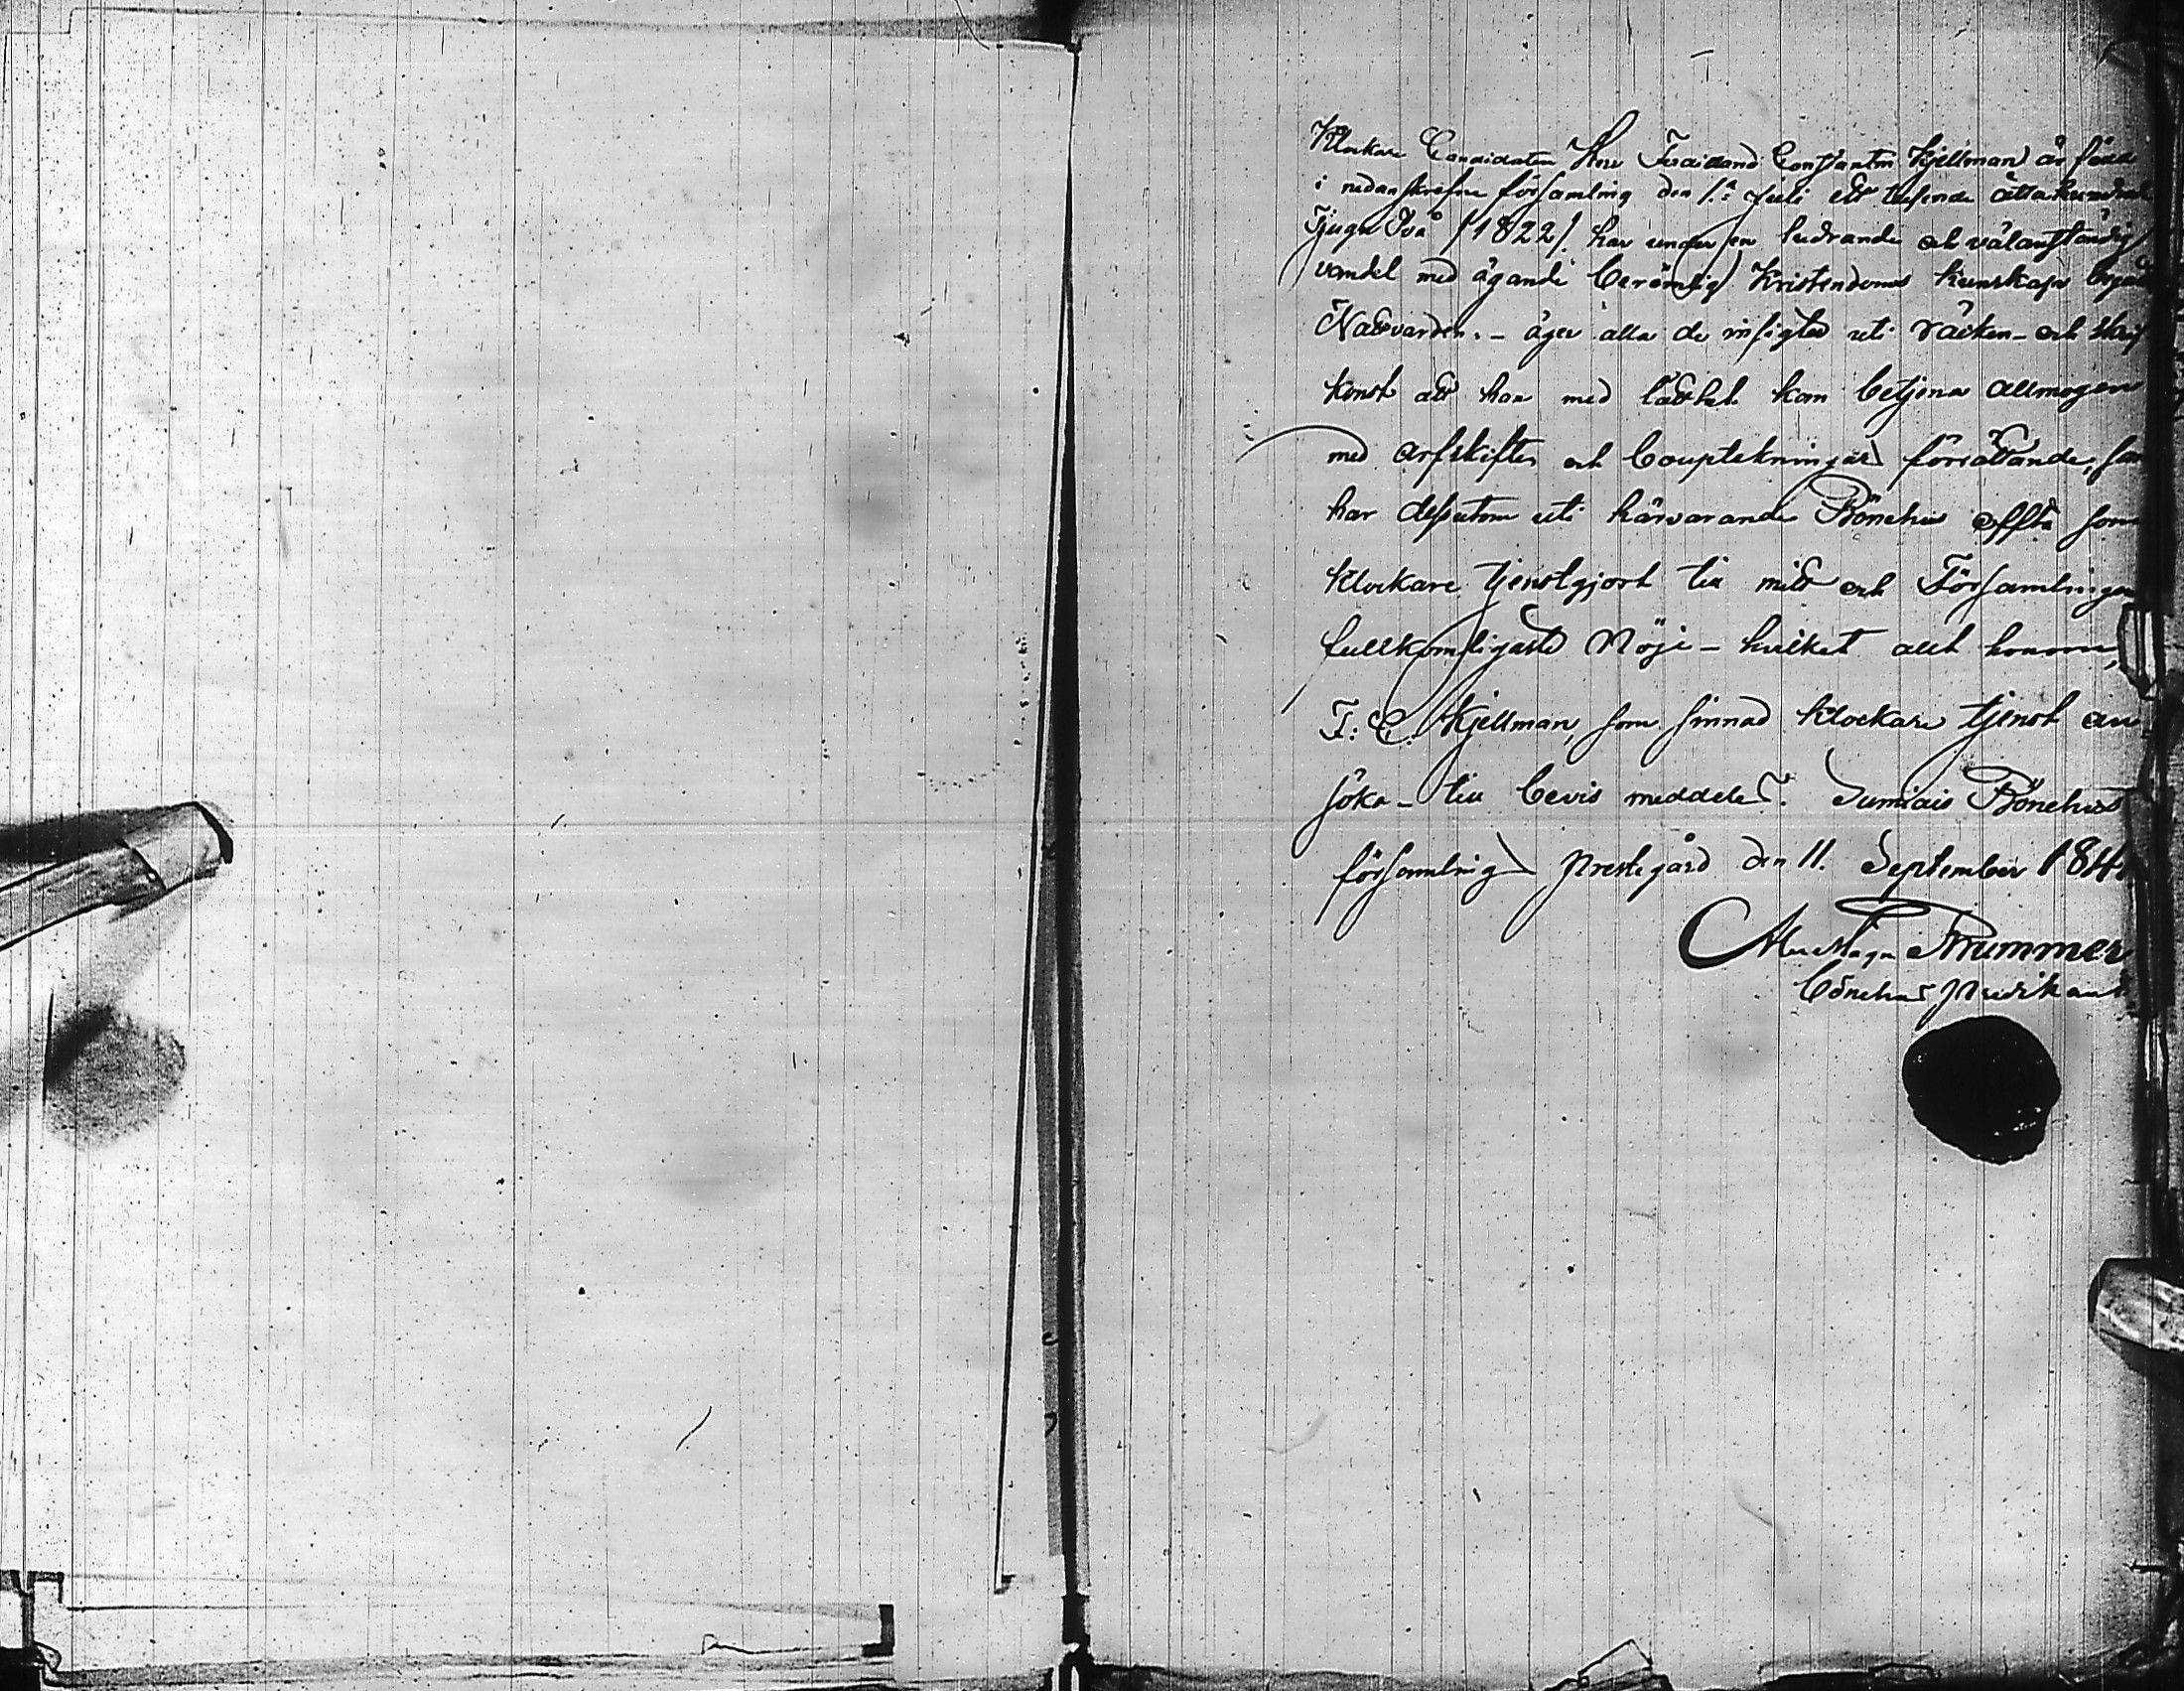 Klockare Candidaten Herr Ferdinand Constantin Kjellman är född
i nedanskrefne församling den 1:a Juli ett tusende åttahundrade
Tjugu Två /1822/. har under en hedrande och välanständig
vandel med ägande berömlig Kristendoms kunskap begått
Nattvarden. - äger alla de insigter uti räcken- och skrif
konst att han med lätthet kan betjena allmogen
med arfskiften och bouptekningars förrättande, han
har dessutom uti härvarande Bönehus offta som
klockare tjenstgjort till mitt och Församlingens
fullkomligaste Nöje - hvilket allt honom,
F: C. Kjellman, som sinnad klockare tjenst an
söka - till bevis meddelas. Sumiais Bönehus
församlings prestegård den 11. September 184
Thummer
bönehus predikant.